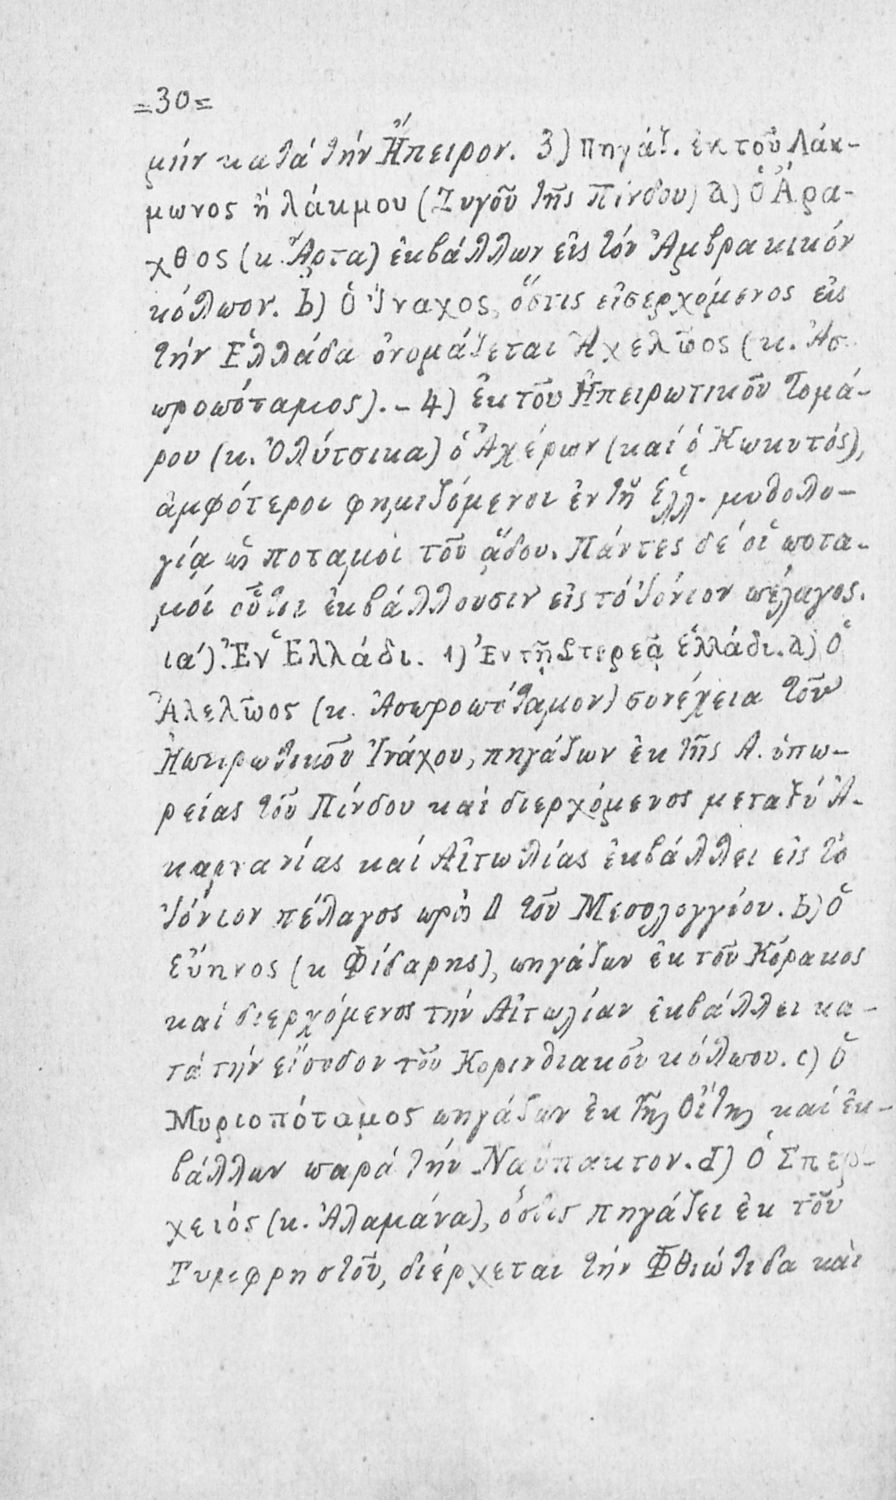 =30=
μήν κατά τήν Ἤπειρον. 3) Πηγάζ. ἐκ τοῦ Λάκ-
μωνος ἤ λάκμου (Ζυγοῦ τῆς Πίνδου) a) ὁ Ἄρα-
χθος (κ. Ἄρτα) ἐκβάλλων εἰς τόν Ἀμβρακικόν
κόλπον. b) Ὁ Ἴναχος, ὅστις εἰσερχόμενος εἰς
τήν Ἑλλάδα ὀνομάζεται Ἀχελῶος (κ. Ἀσ-
προπόταμος). - 4) ἐκ τοῦ Ἠπειρωτικοῦ Τομά-
ρου (κ. Ὀλύτσικα) ὁ Ἀχέρων (καί ὁ Κωκυτός),
ἀμφότεροι φημιζόμενοι ἐν τῇ Ἑλλ. μυθολο-
γίᾳ ὡς ποταμοί τοῦ ᾅδου. Πάντες δέ οἱ ποτα-
μοί οὗτοι ἐκβάλλουσιν εἰς τό Ἰόνιον πέλαγος.
ια΄). Ἐν Ἑλλάδι. 1) Ἐν τῇ Στερεᾷ Ἑλλάδι. a) Ὁ
Ἀλελῶος (κ. Ἀσπροπόταμον) συνέχεια τοῦ
Ἠπειρωτικοῦ Ἰνάχου, πηγάζων ἐκ τῆς Α. ὑπω-
ρείας τοῦ Πίνδου καί διερχόμενος μεταξύ Ἀ-
καρνανίας καί Αἰτωλίας ἐκβάλλει εἰς τό
Ἰόνιον πέλαγος πρός Δ τοῦ Μεσολογγίου. b) Ὁ
Εὔηνος (κ Φίδαρης), πηγάζων ἐκ τοῦ Κόρακος
καί διερχόμενος τήν Αἰτωλίαν ἐκβάλλει κα-
τά τήν εἴσοδον τοῦ Κορινθιακοῦ κόλπου. c) Ὁ
Μυριοπόταμος πηγάζων ἐκ τῆς Οἴτης καί ἐκ-
βάλλων παρά τήν Ναύπακτον. d) Ὁ Σπερ-
χειός (κ. Ἀλαμάνα), ὅστις πηγάζει ἐκ τοῦ
Τυμφρηστοῦ, διέρχεται τήν Φθιώτιδα καί